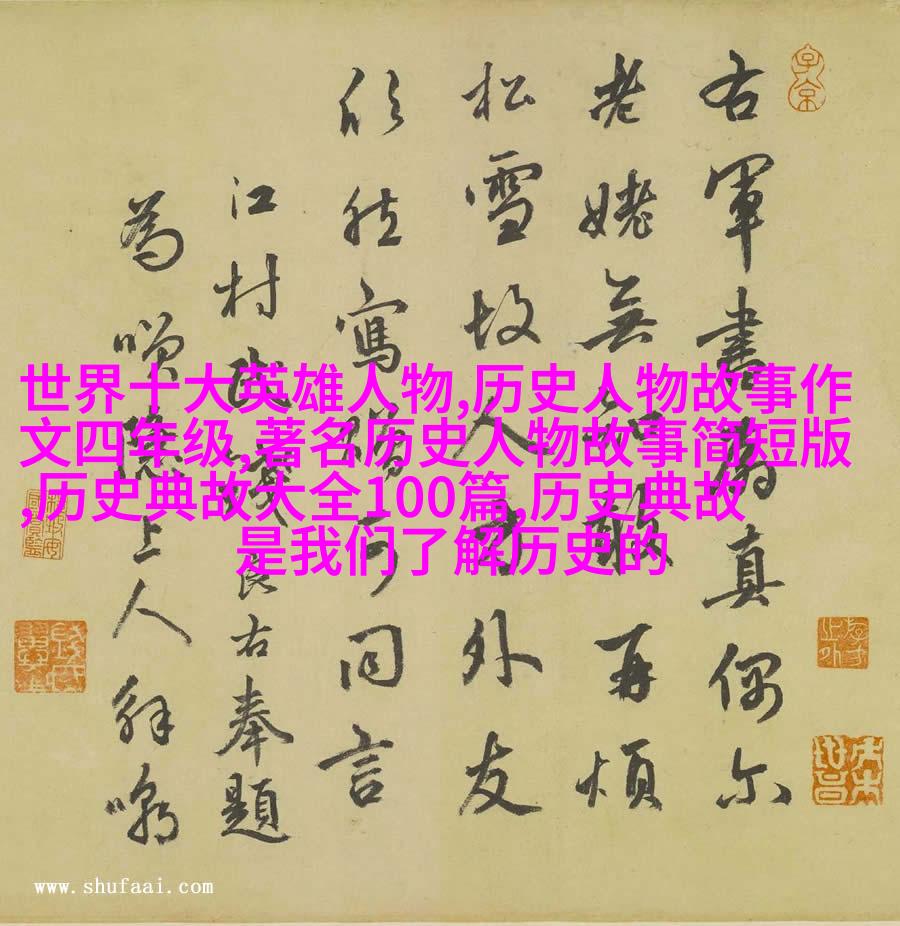 右軍書扇真偶尔
老姥無知敢再煩
松雪故人方外友
欣然寫贈可同言
江村民良右奉題
為隱上人解嘲
世界十大英雄人物,历史人物故事作
文四年级,著名历史人物故事简短版
,历史典故大全100篇,历史典故
是我们了解历史的
www.shufaai.com